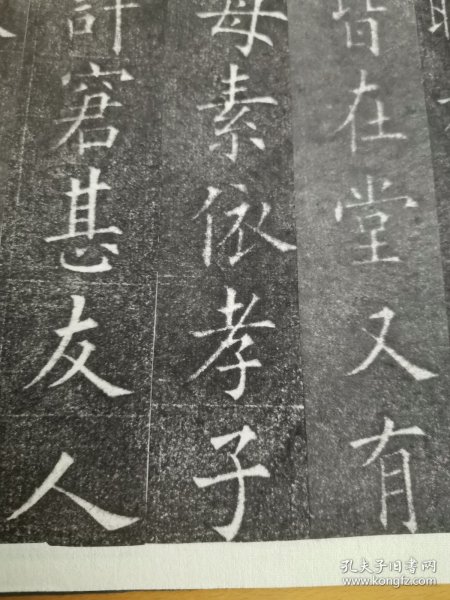 皆在堂又有
母素依孝子
計窘甚友人
孔夫子旧书网
www.kongfz.com